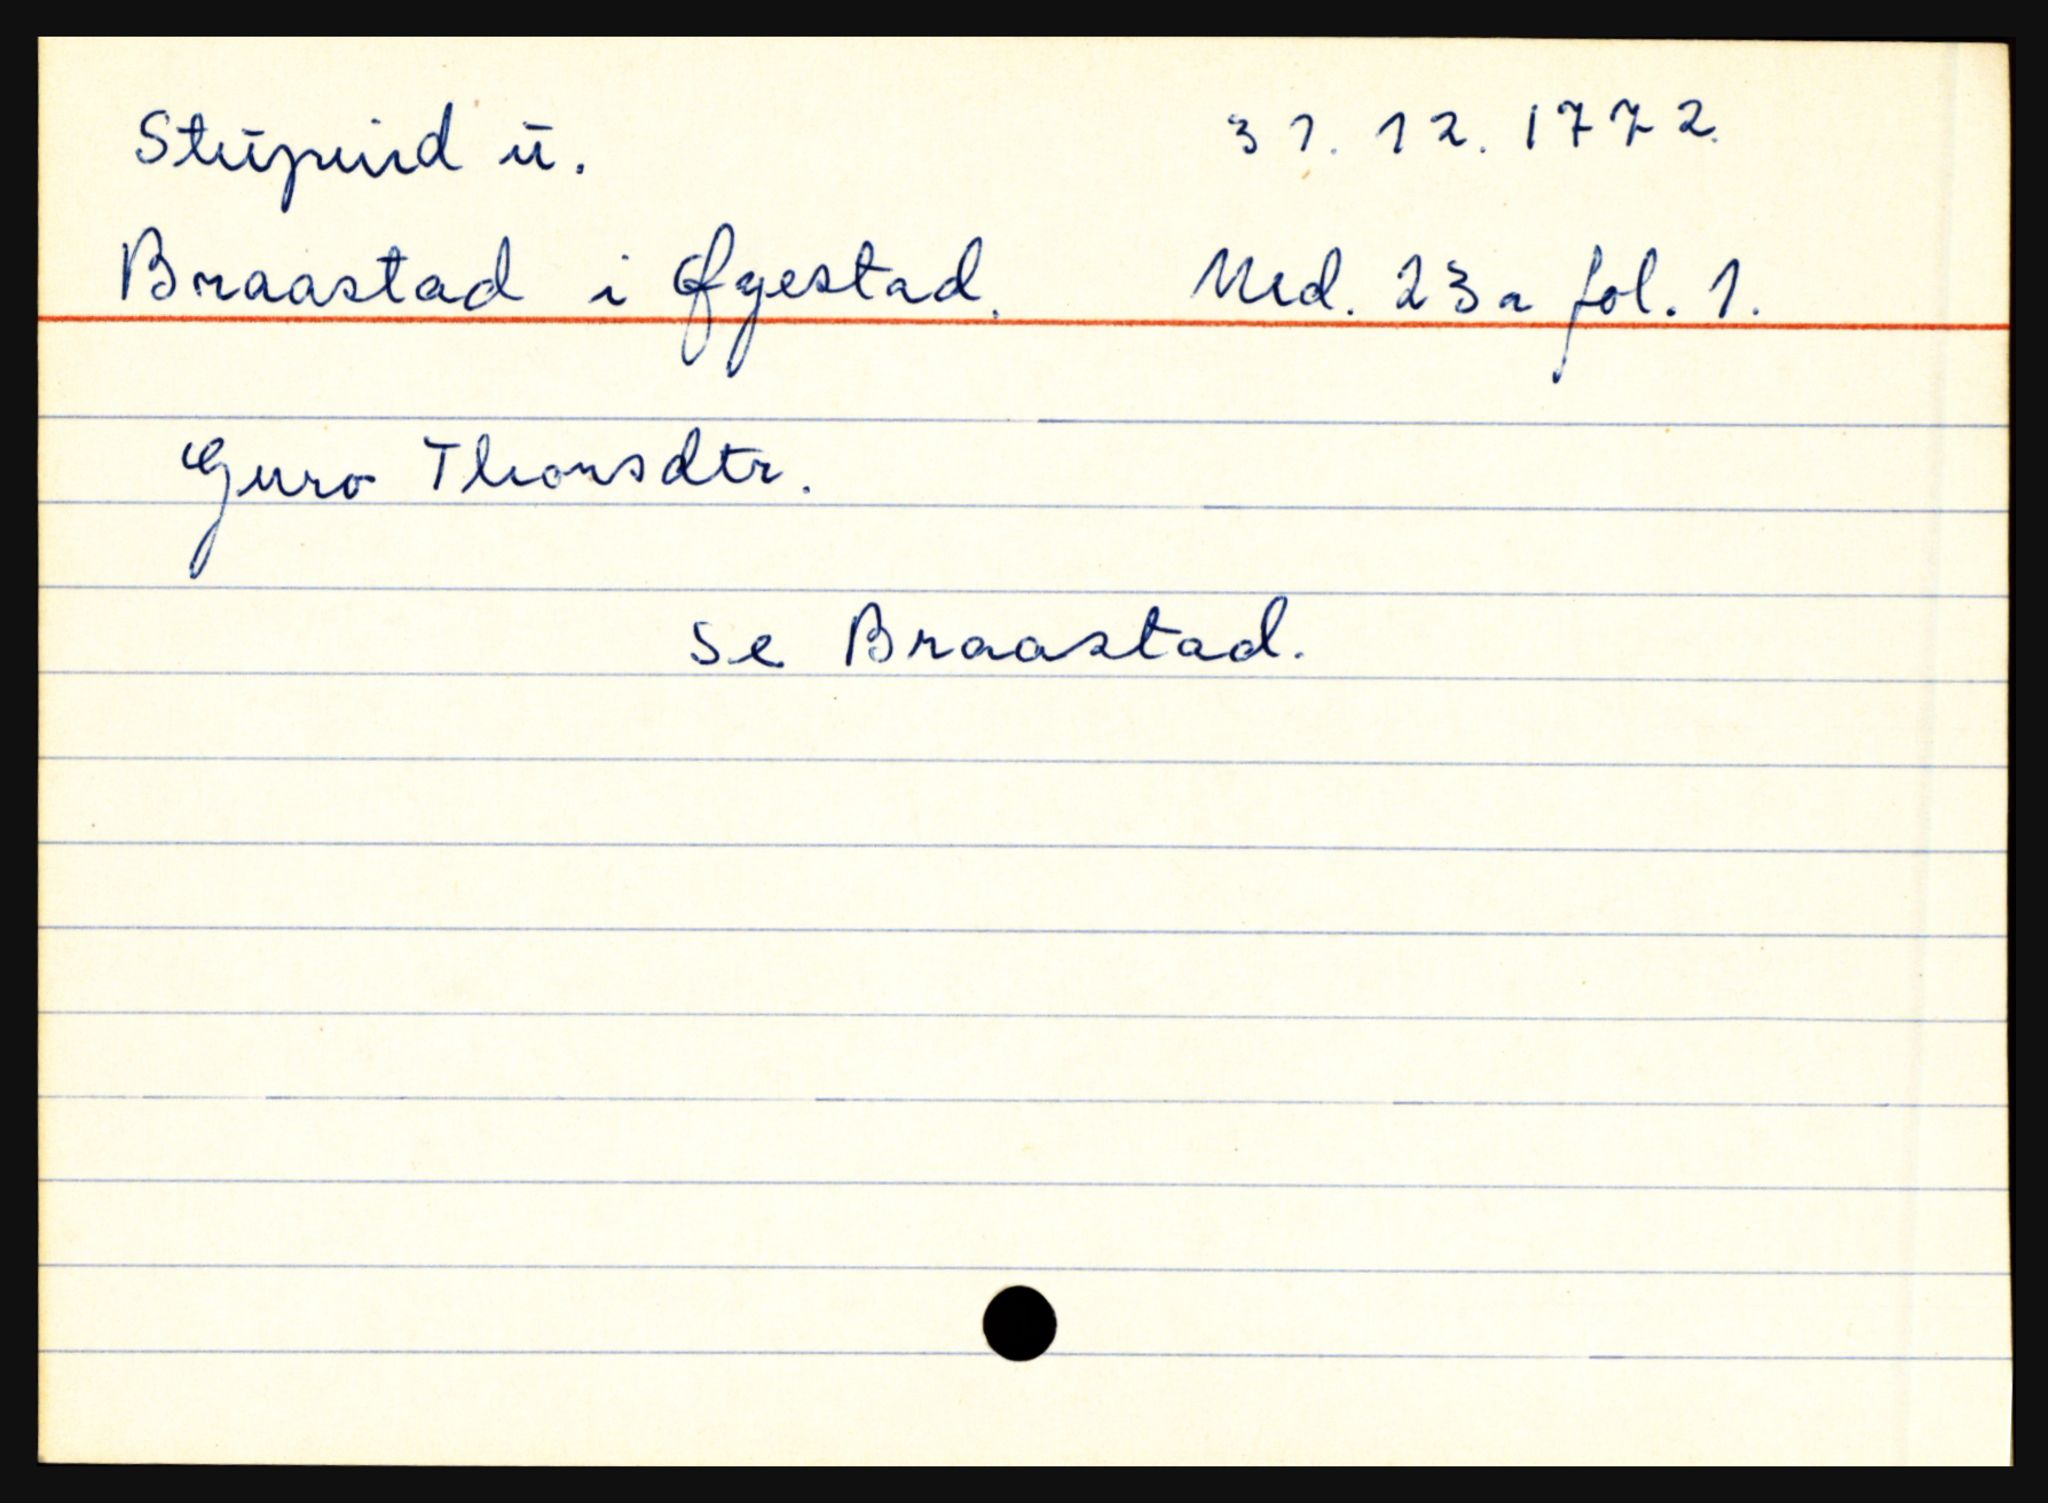 Stupurd u. 31. 12. 1772.
Braastad i Øyestad. Ned. 23a fol. 1.
Guro Thorsdtr.
se Braastad.